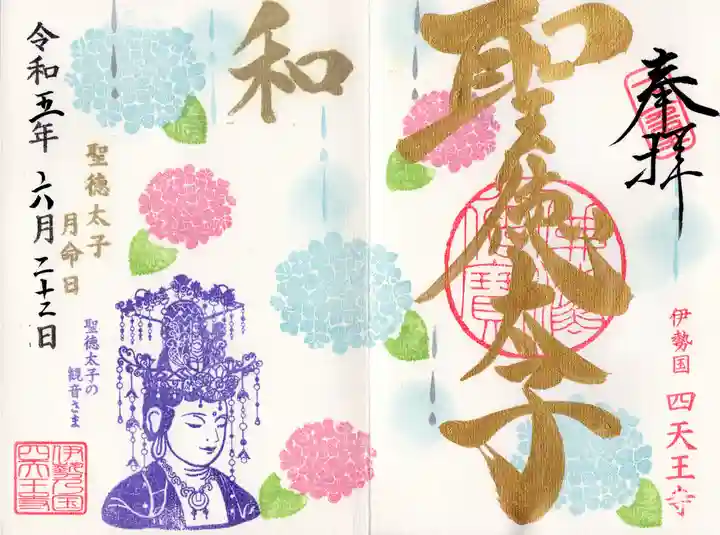 奉拝
聖徳太子
伊勢国 四天王寺
和
令和五年 六月二十二日
聖徳太子
月命日
聖徳太子の
観音さま
伊勢乃国
四天王寺